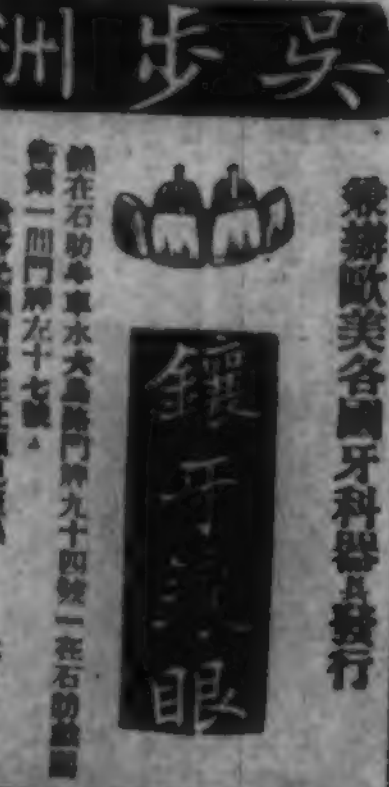 吳步洲
兼辦歐美各國牙科器具發行
鑲牙 眼
在石叻牛車水大馬路門牌九十四號一在石叻
街第一間門牌左十七號